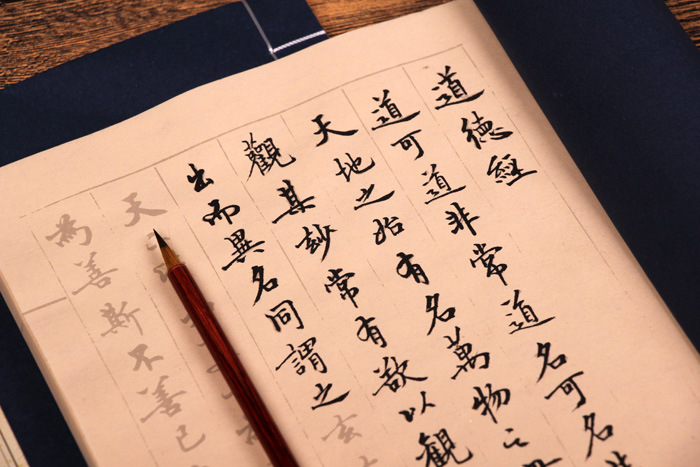 道德經
道可道非常道名可名
天地之始有名萬物之
觀其妙常有欲以觀
出而異名同謂之玄
天
為善斯不善已